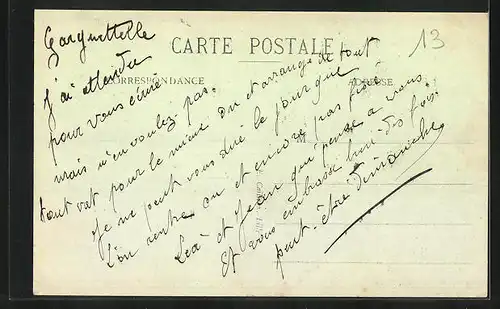 Garguettelle
CARTE POSTALE
13
CORRESPONDANCE
ADRESSE
M
J'ai attendu
pour vous écrire
mais n'en voulez pas.
tout vat pour le mieux on et arrangé de tout
Je ne peut vous dire le jour que
l'on rentre on et encore pas fixé
Léa et Jean qui pense a vous
Et vous embrasse bien des fois
peut-être Dimanche